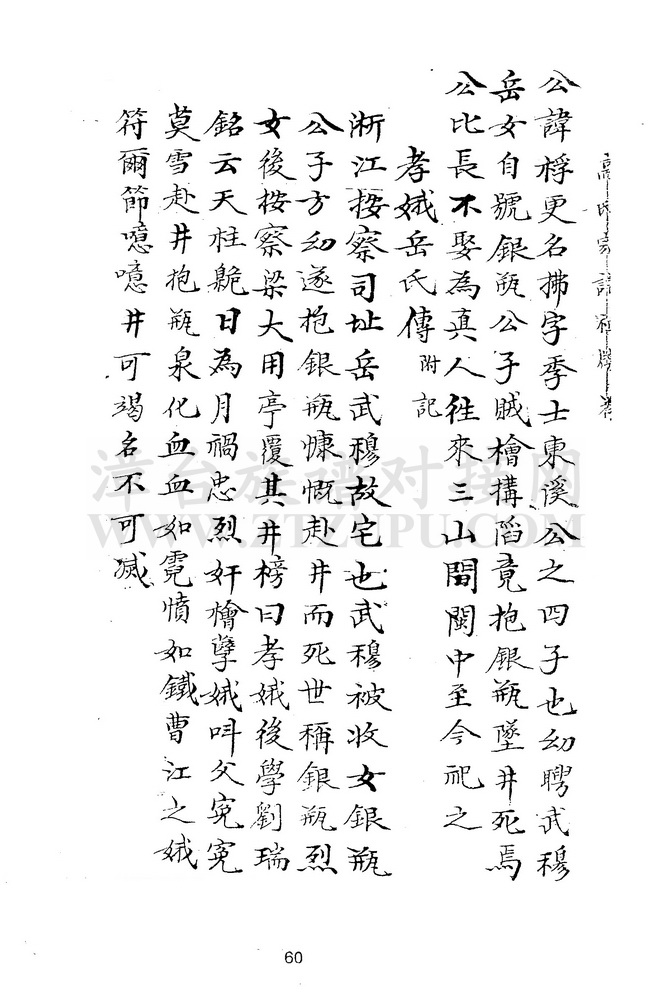 高氏家譜
公諱桴更名拂字季士東溪公之四子也幼聘武穆
岳女自號銀瓶公子賊檜搆陷竟抱銀瓶墜井死焉
公比長不娶為真人往來三山間閩中至今祀之
孝娥岳氏傳 附記
淅江按察司址岳武穆故宅也武穆被收女銀瓶
公子方幼遂抱銀瓶慷慨赴井而死世稱銀瓶烈
女後按察梁大用亭覆其井榜曰孝娥後學劉瑞
銘云天柱臲日為月禍忠烈奸檜孽娥叫父寃寃
莫雪赴井抱瓶泉化血血如霓憤如鐵曹江之娥
符爾節噫噫井可竭名不可滅
漳台族谱对接网
WWW.ZTZUPU.COM
60